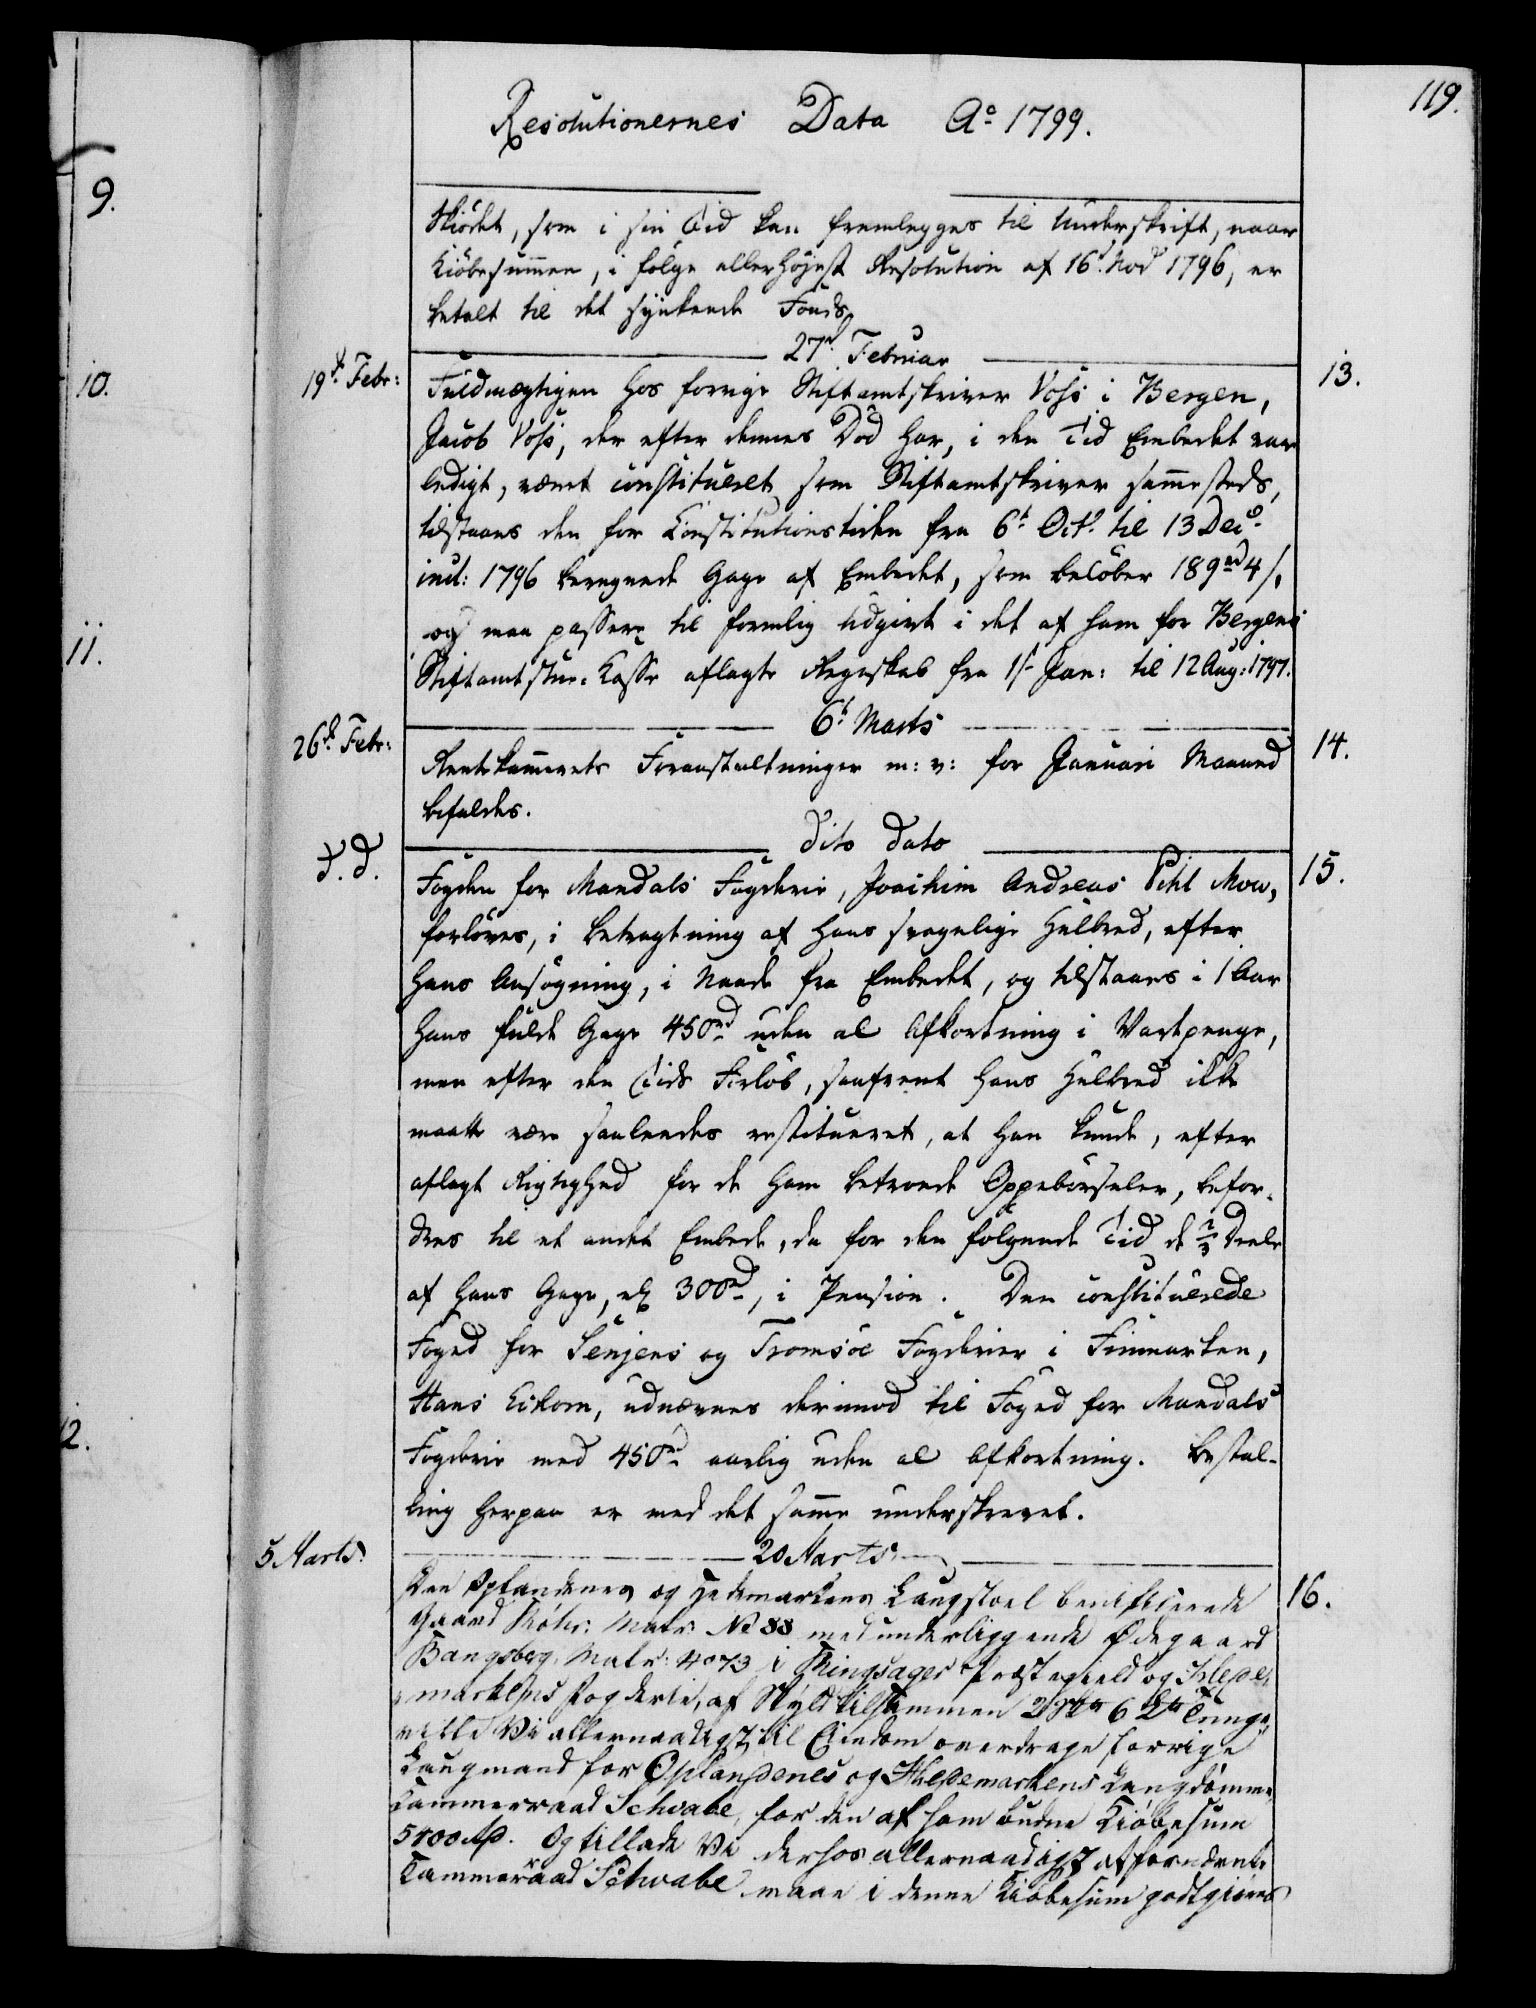 119.
Resolutionernes Data Aº 1799.
9.
Skiödet, som i sin Tid kan fremlegges til Underskrift, naar
Kiöbesummen, i følge allerhøjest Resolution af 16d Nov 1796, er
betalt til det synkende Fonds.
27d Februar
10.
19d Febr:
13.
Fuldmegtigen hos forrige Stiftamtskriver Voss i Bergen,
Jacob Voss, der efter dennes Død har, i den Tid Embedet var
ledigt, været constitueret som Stiftamtskriver sammesteds,
tilstaaes den for Constitutionstiden fra 6t Octr til 13 Decr
incl: 1796 beregnede Gage af Embedet, som beløber 189rd 4 s,
og maa passere til formlig Udgivt i det af ham for Bergens
11.
Stiftamtstue-Casse aflagte Regnskab fra 1st Jan: til 12 Aug: 1797.
6t Marts
26d Febr:
14.
Rentekammerets Foranstaltninger m: v: for Januari Maaned
befaldes.
dito dato
d. d.
15.
Fogden for Mandals Fogderie, Joachim Andreas Pihl Mow,
forløves, i Betragtning af hans svagelige Helbred, efter
hans Ansøgning, i Naade fra Embedet, og tilstaaes i 1 Aar
hans fulde Gage 450rd uden al Afkortning i Vartpenge,
men efter den Tids Forløb, saafremt hans Helbred ikke
maatte være saaledes restitueret, at han kunde, efter
aflagt Rigtighed for de ham betroede Oppebørseler, befor-
dres til et andet Embede, da for den følgende Tid de 2/3 Deele
af hans Gage, 300rd, i Pension. Den constituerede
Foged for Senjens og Tromsöe Fogderier i Finmarken,
Hans Eckom, udnævnes derimod til Foged for Mandals
12.
Fogderie med 450rd aarlig uden al Afkortning. Bestal-
ling herpaa er med det samme underskrevet.
20 Marts
5 Marts.
16.
Den Oplandenes og Hedemarkens Laugstoel beneficerede
Gaard Matr: No 88 med underliggende Ødegaard
Bangsberg, Matr: No 73 i Ringsager Præstegield og Hede-
markens Fogderie, af Skyld tilsammen 2 6 Tunge
ville Vi allernaadigst til Eiendom overdrage forrige
Laugmand for Oplandenes og Hedemarkens Laugdømme,
Kammerraad Schwabe, for den af ham budne Kiøbesum
5400 rd. Og tillade Vi derhos allernaadigst at forn.
Kammerraad Schwabe maae i denne Kiøbesum godtgiøres